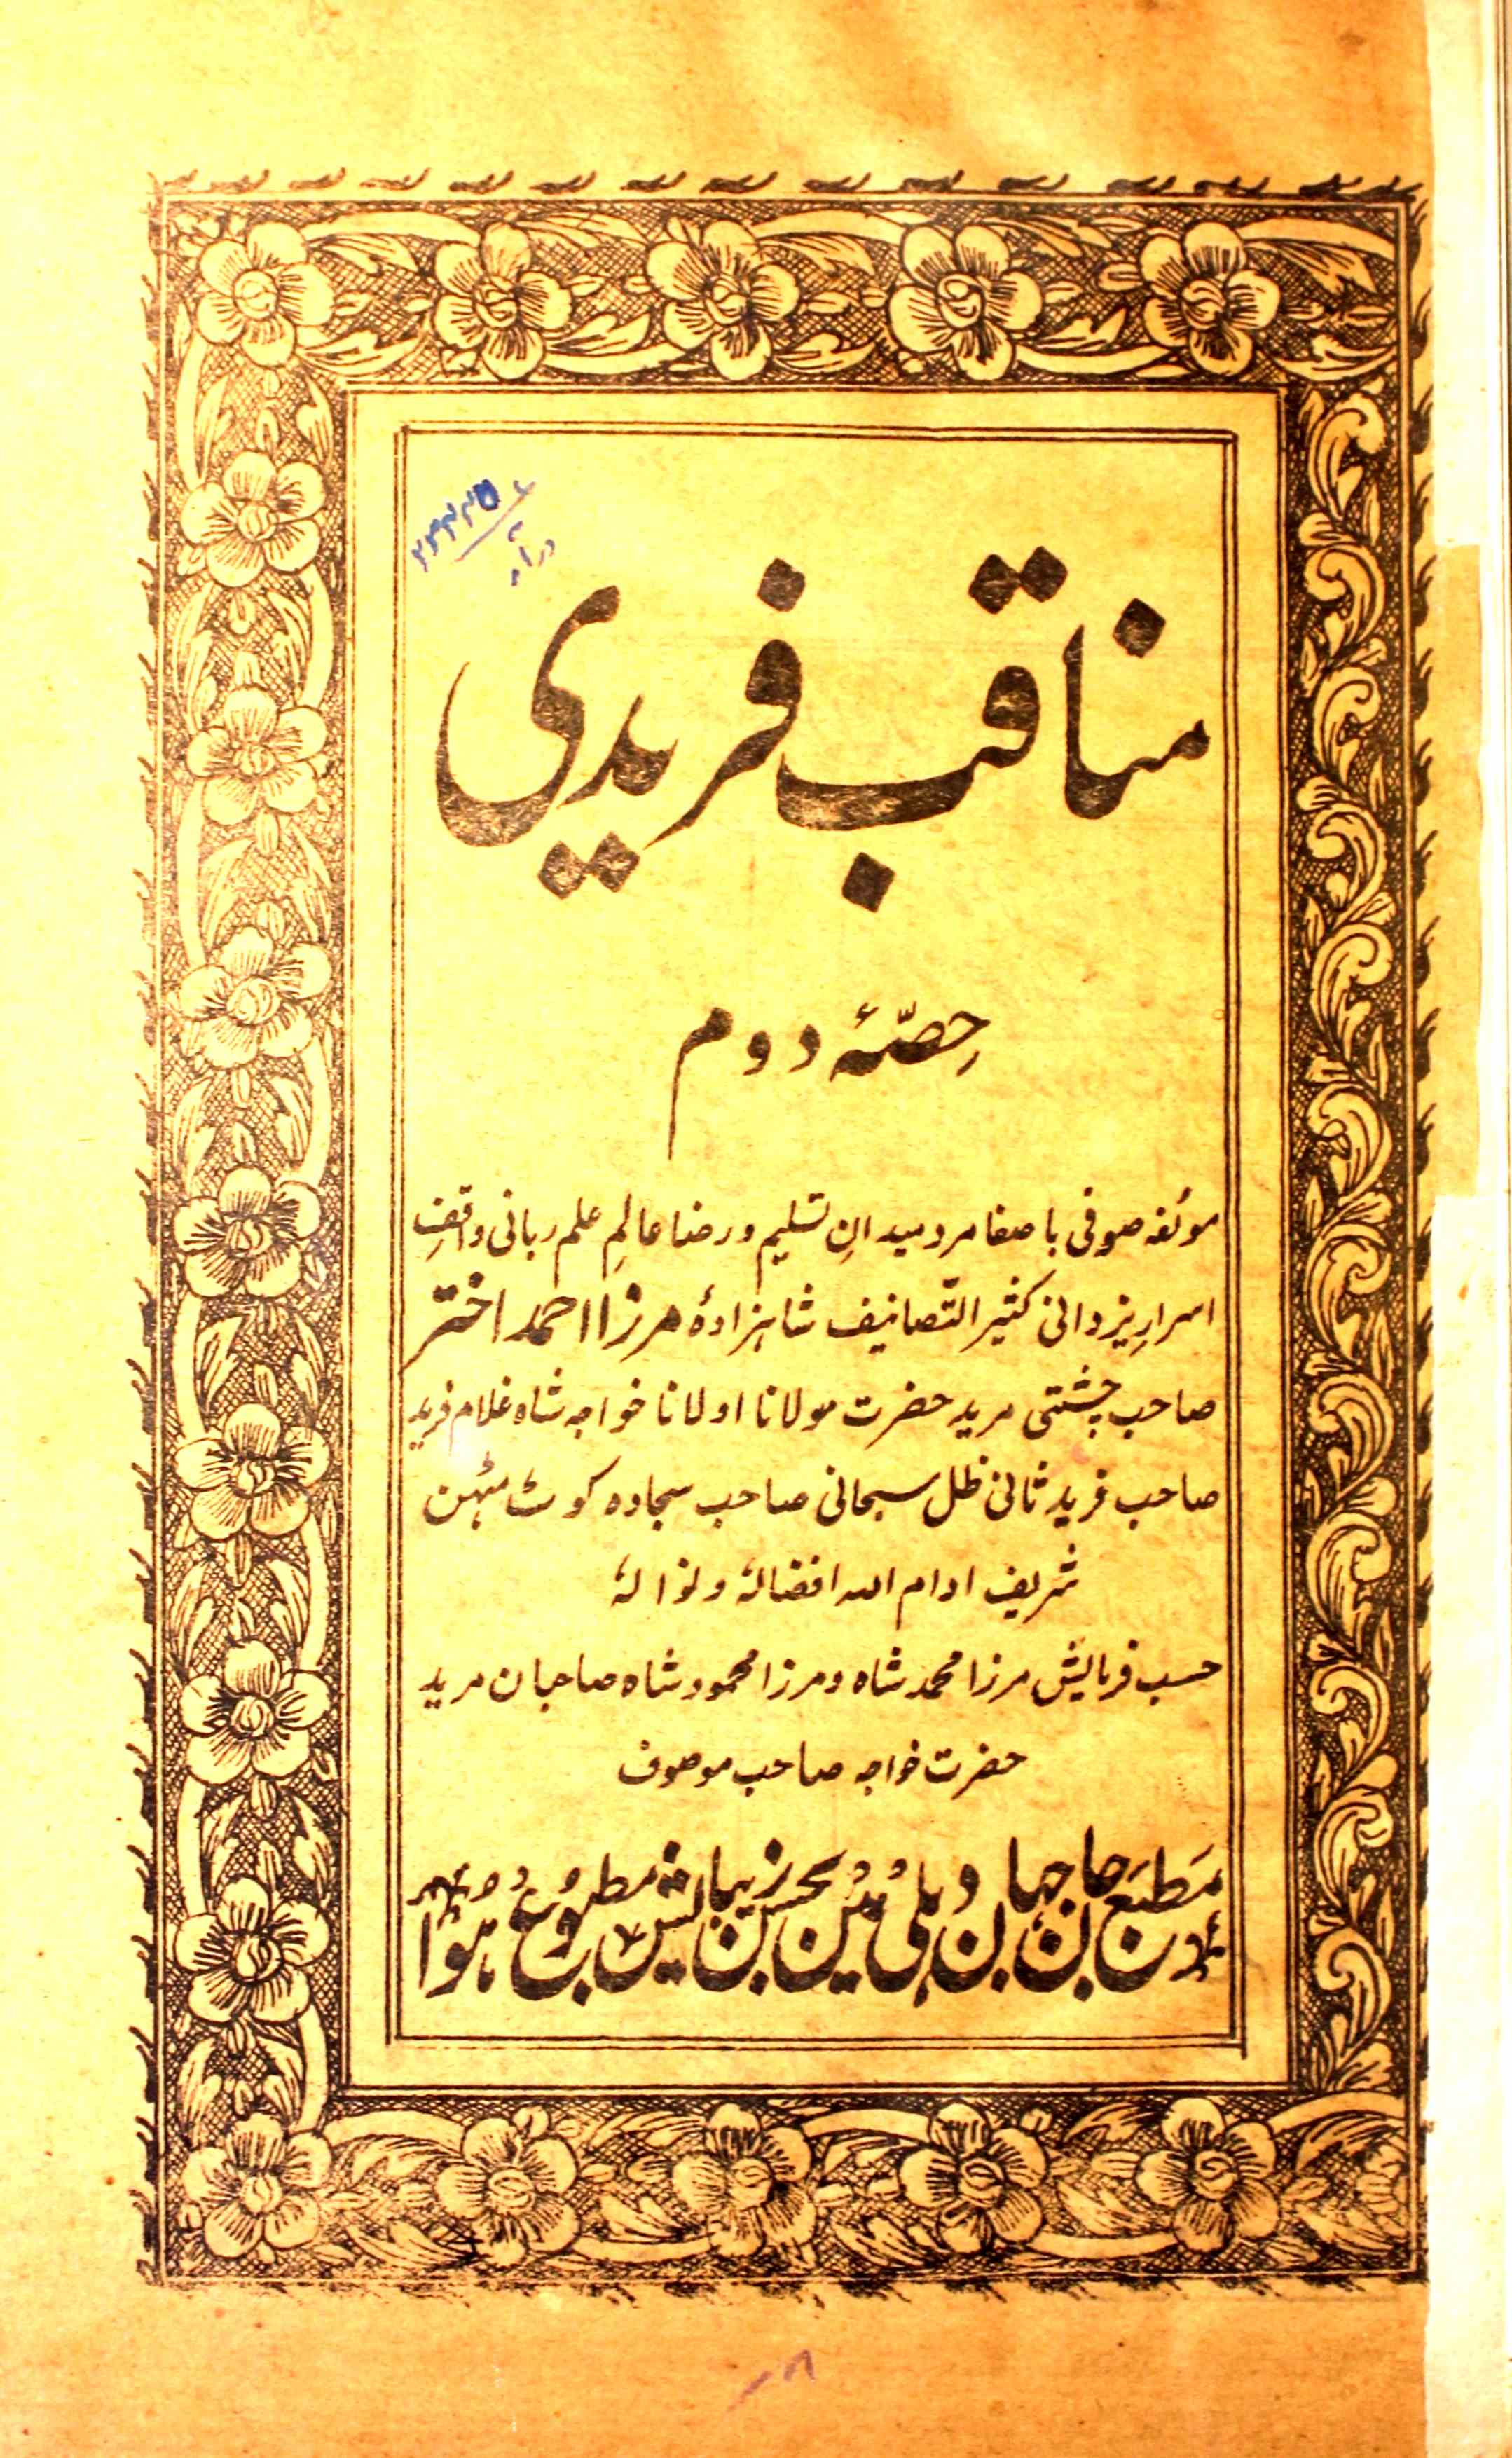 مناقب فریدی
حصّۂ دوم
مؤلفہ صوفی با صفا مرد میدانِ تسلیم و رضا عالمِ علم ربانی واقفِ
اسرارِ یزدانی کثیر التّصانیف شاہزادۂ مرزا احمد اختر
صاحب چشتی مرید حضرت مولانا اولانا خواجہ شاہ غلام فرید
صاحب فرید ثانی ظل سبحانی صاحب سجادہ کوٹ مٹہن
شریف ادام اللہ افضالہٗ و نوالہٗ
حسب فرمایش مرزا محمد شاہ و مرزا محمود شاہ صاحبان مرید
حضرت خواجہ صاحب موصوف
مطبع جان جہان دہلی میں بحسن زیبایش مطبوع ہوا